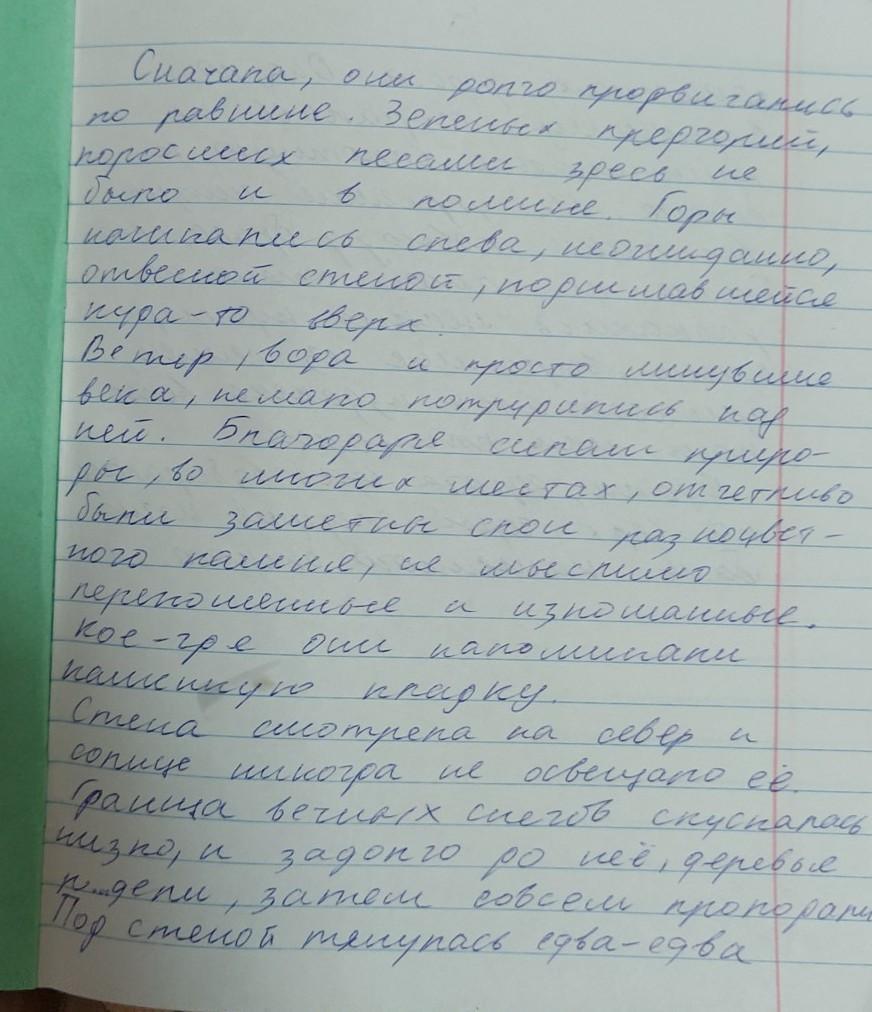 Сначала, они долго продвигались
по равнине. Зеленых предгорий,
поросших лесами здесь не
было и в помине. Горы
начинались слева, неожиданно,
отвесной стеной, поднимавшейся
куда-то вверх.
Ветер, вода и просто минувшие
века, немало потрудились над
ней. Благодаря силам приро-
ды, во многих местах, отчетливо
были заметны слои разноцвет-
ного камня, не мыслимо
перекошенные и изломанные.
Кое-где они напоминали
каменную кладку.
Стена смотрела на север и
солнце никогда не освещало её.
Граница вечных снегов спускалась
низко, и задолго до неё, деревья
сами, затем совсем пропадали
Под стеной тянулась едва-едва